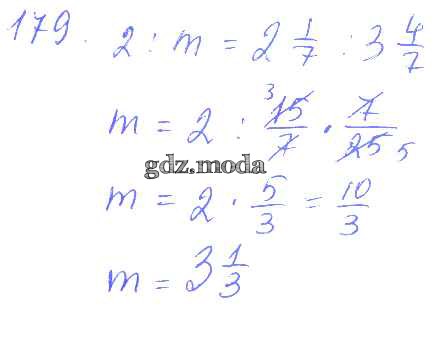 179. 2 : m = 2 1/7 : 3 4/7
m = 2 : 15/7 · 7/25 3 5
gdz.moda
m = 2 · 5/3 = 10/3
m = 3 1/3